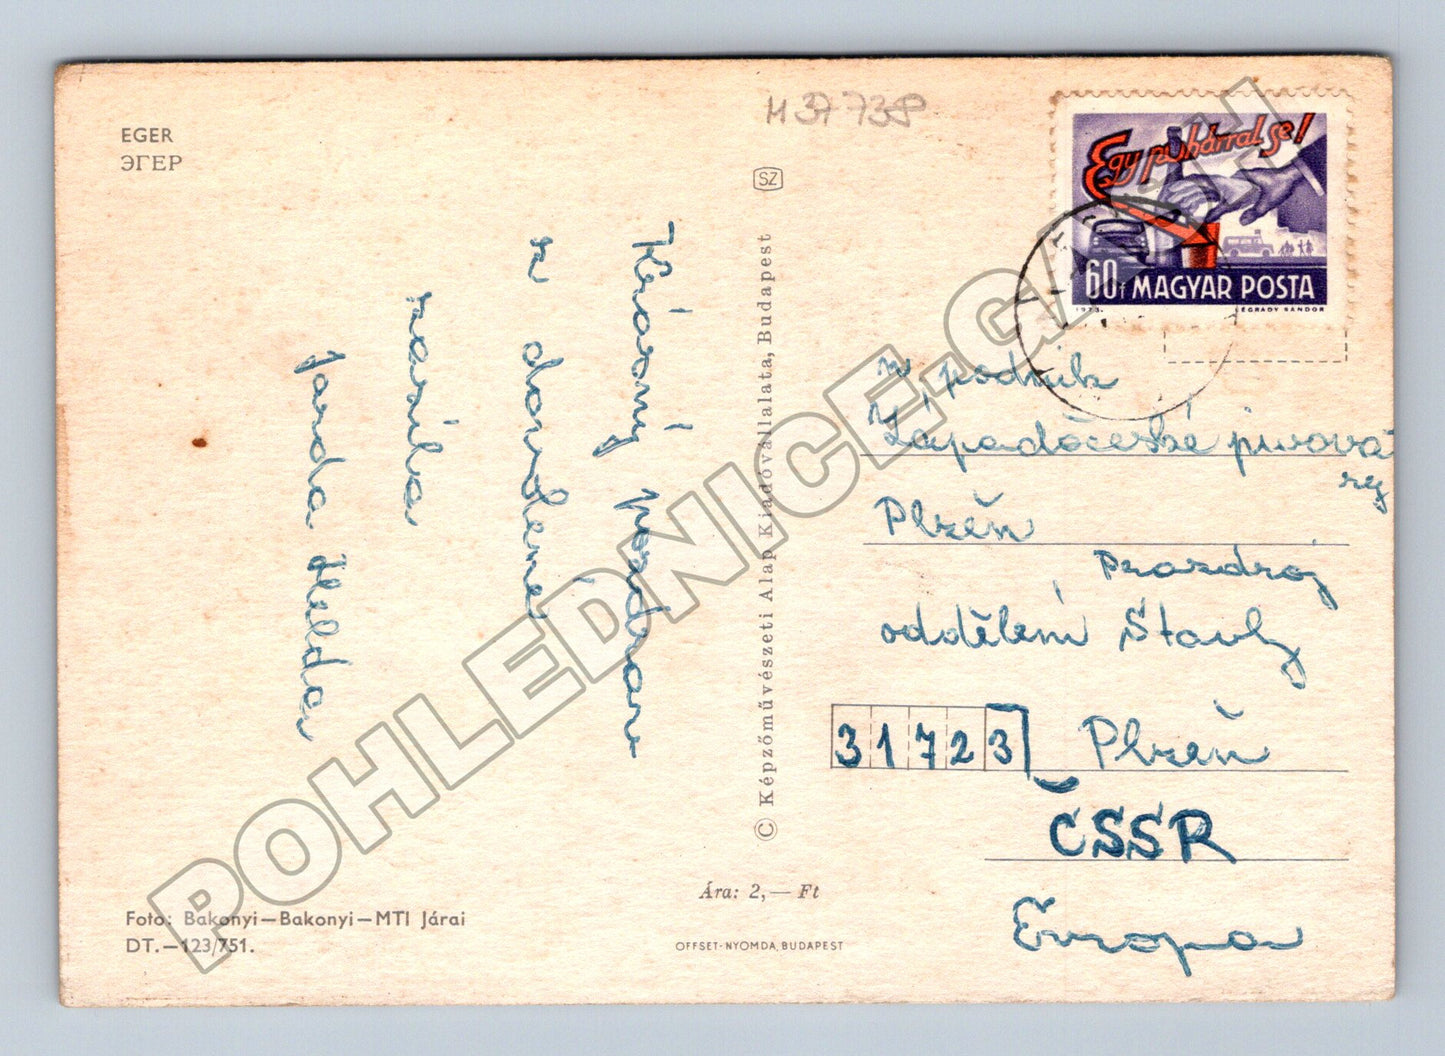 EGER
ЭГЕР
H 37 738
SZ
Egy pohárral se!
60f MAGYAR POSTA
1973.
LÉGRÁDY SÁNDOR
Krásný pozdrav
z dovolené
zasílá
Jarda Helda
© Képzőművészeti Alap Kiadóvállalata, Budapest
n. podnik
Západočeské pivova
rey
Plzeň
Prazdroj
oddělení Stavby
31723 Plzeň
ČSSR
Evropa
Ára: 2,— Ft
Foto: Bakonyi—Bakonyi—MTI Járai
DT.—123/751.
OFFSET-NYOMDA, BUDAPEST